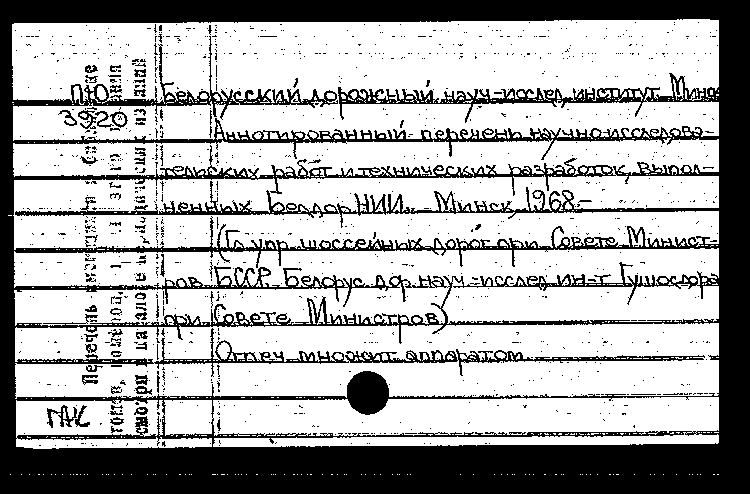 ПЮ
3920
Белорусский дорожный науч-исслед. институт. Минск
Аннотированный перечень научно-исследова-
тельских работ и технических разработок, выпол-
ненных БелдорНИИ. Минск, 1968-
(Гл. упр. шоссейных дорог при Совете Минист-
ров БССР. Белорус. дор. науч-исслед. ин-т Гушосдора
при Совете Министров)
Отпеч. множит. аппаратом
Перечень
томов, номеров,
смотри в каталоге периодических изданий